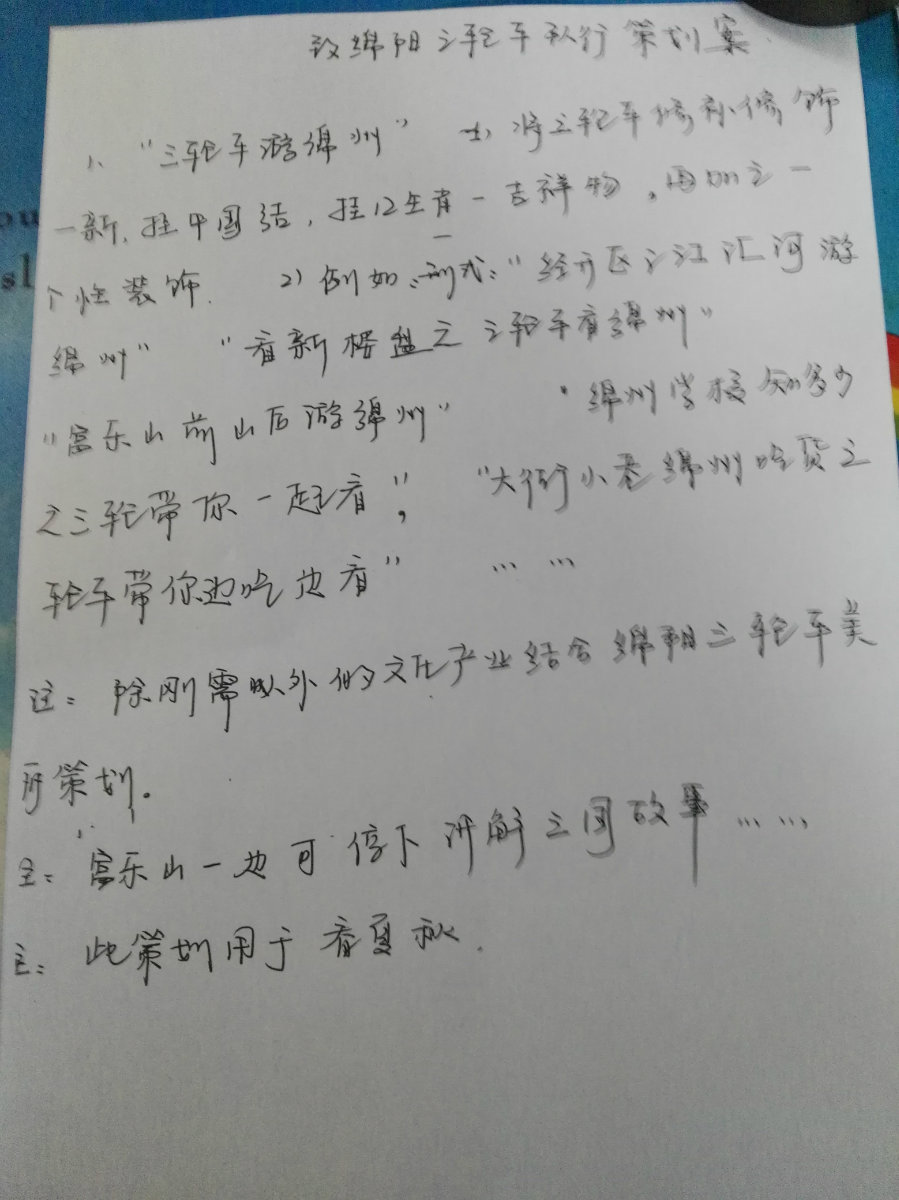 致绵阳三轮车队行策划案
1、“三轮车游绵州” 1) 将三轮车修补修饰
一新，挂中国结，挂12生肖一吉祥物，再加之一
个性装饰. 2) 例如：形式：“经开区三江汇河游
绵州” “看新楼盘之三轮车看绵州”
“富乐山前山后游绵州” “绵州学校知多少
之三轮带你一起看”， “大街小巷绵州吃货之
轮车带你边吃边看” ……
注：除刚需以外的文化产业结合绵阳三轮车美
所策划。
注：富乐山一边可停下讲解三国故事……
注：此策划用于春夏秋.
ou
sl